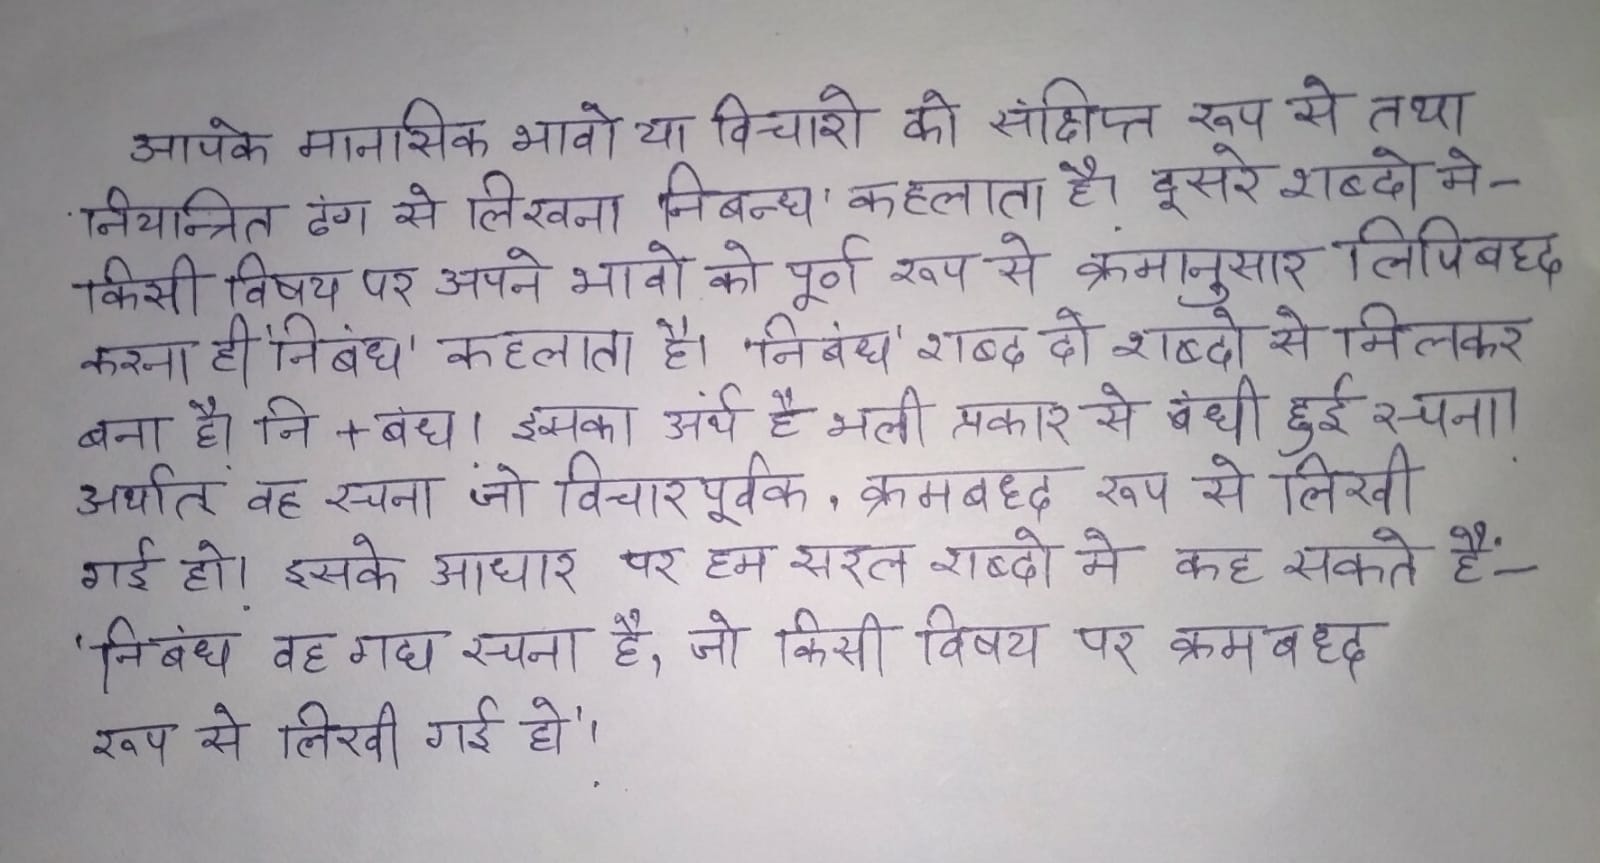 आपके मानसिक भावो या विचारो को संक्षिप्त रूप से तथा
नियान्त्रित ढंग से लिखना 'निबन्ध' कहलाता है। दूसरे शब्दो मे-
किसी विषय पर अपने भावो को पूर्ण रूप से क्रमानुसार लिपिबध्द
करना ही 'निबंध' कहलाता है। 'निबंध' शब्द दो शब्दो से मिलकर
बना है। नि + बंध। इसका अर्थ है भली प्रकार से बंधी हुई रचना।
अर्थात वह रचना जो विचारपूर्वक, क्रमबध्द रूप से लिखी
गई हो। इसके आधार पर हम सरल शब्दो मे कह सकते हैं-
'निबंध वह गद्य रचना है, जो किसी विषय पर क्रमबध्द
रूप से लिखी गई हो'।